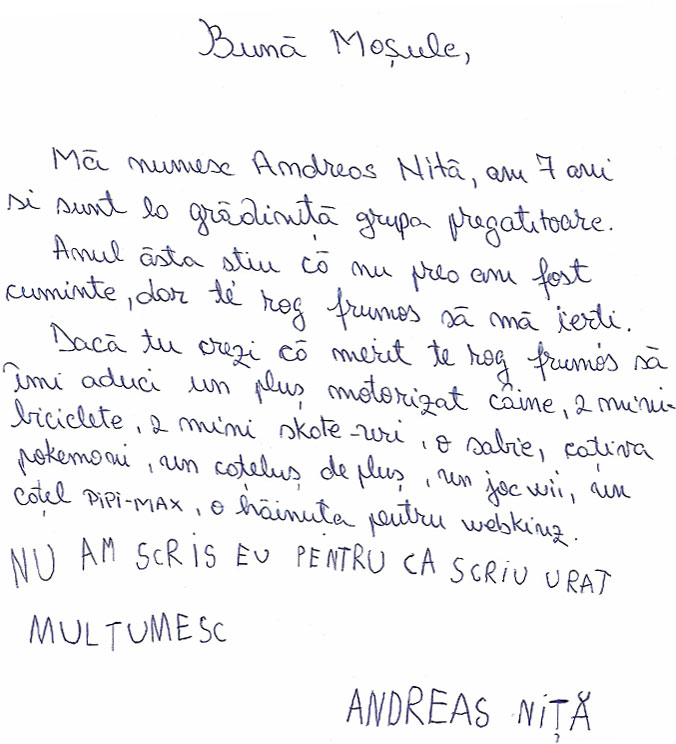 Bună Moșule,
Mă numesc Andreas Nită, am 7 ani
si sunt la grădiniță grupa pregatitoare.
Anul ăsta stiu că nu prea am fost
cuminte, dar te rog frumos să mă ierti.
Dacă tu crezi că merit te rog frumos să
îmi aduci un pluș motorizat câine, 2 mini-
biciclete, 2 mini skate-uri, o sabie, cațiva
pokemoni, un cațeluș de pluș, un joc wii, un
cațel PiPi-MAX, o hăinuta pentru webkinz.
NU AM SCRIS EU PENTRU CA SCRIU URAT
MULȚUMESC
ANDREAS NIȚĂ